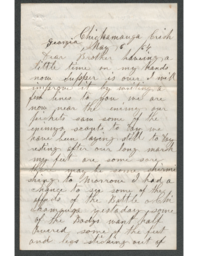 Chickamauga Creek
Georgia May 6 / 64
Dear Brother haveing a
little time on my hands
now supper is over I will
improve it by writing a
few lines to you we are
now near the enemy our
pickets saw some of the
enemys scouts to day we
have bin laying still to day
resting after our long march
my feet are some sore
there may be some skirmis
hing to morrow I had a
chance to see some of the
effects of the Battle of Chic
kamauga yesterday some
of the bodys want half
burred some of the feet
and legs sticking out of